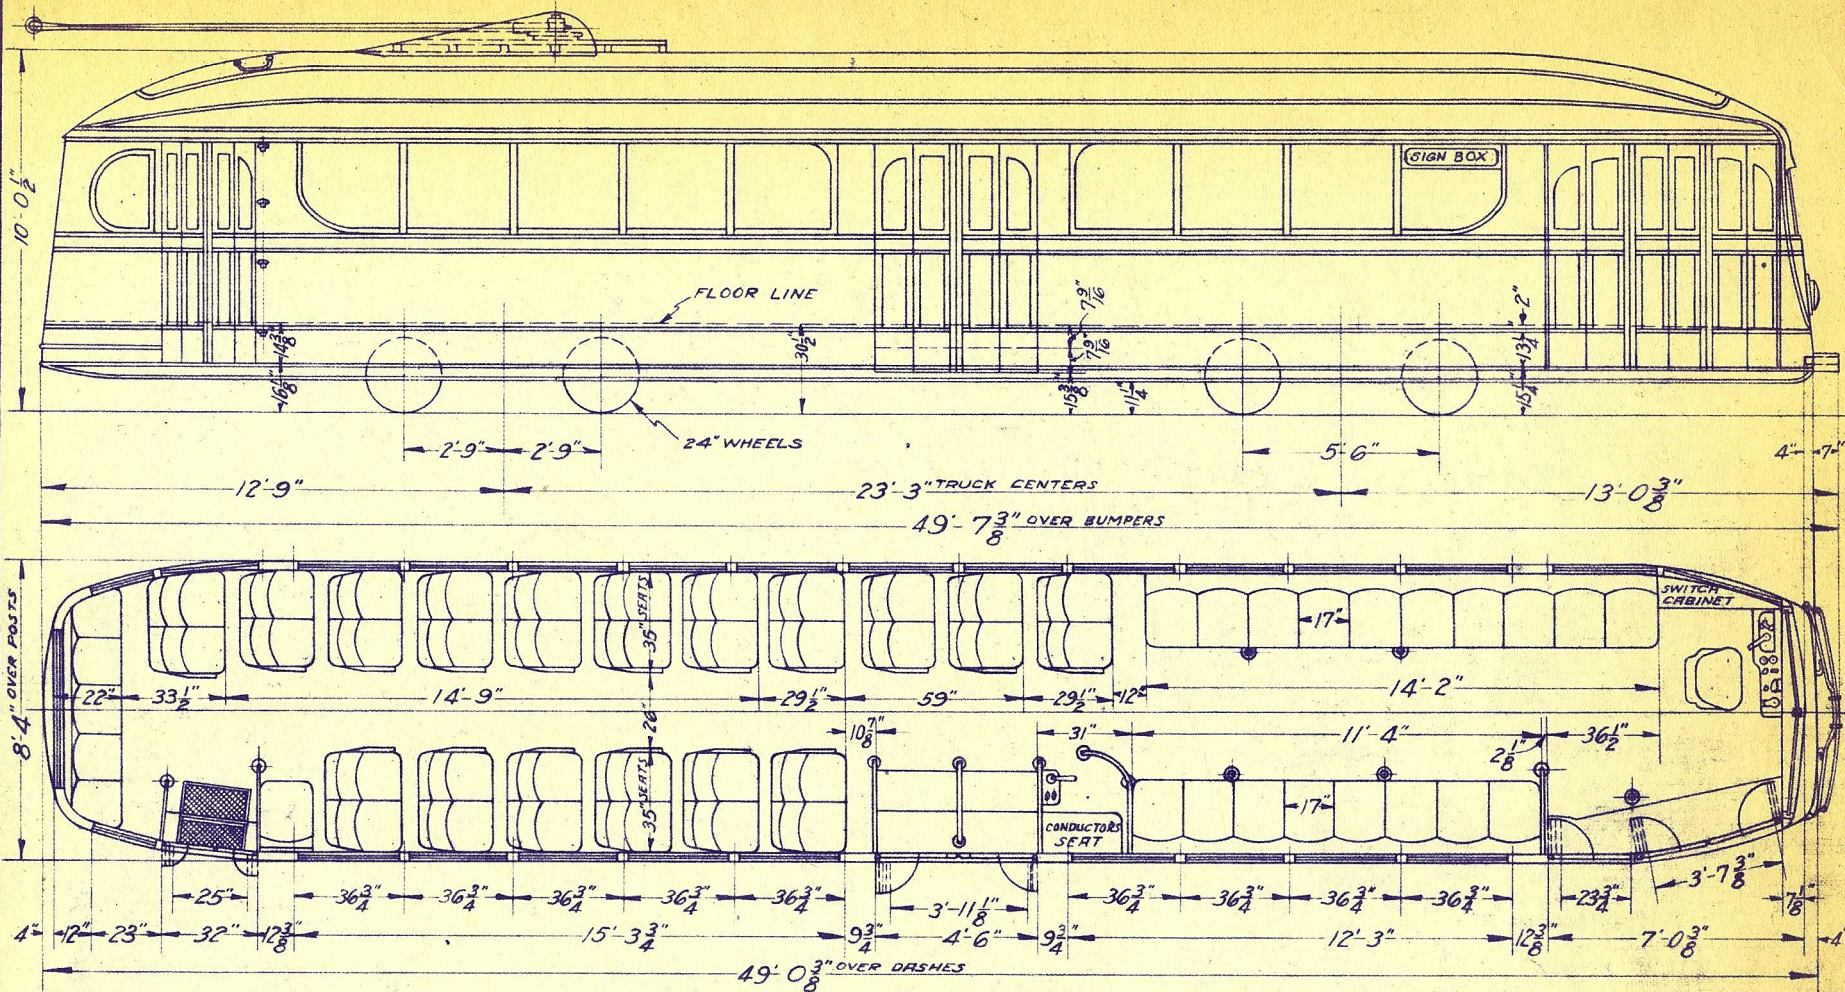 SIGN BOX
10'-0 1/2"
FLOOR LINE
7 9/16"
7 9/16"
2"
13 1/4"
14 3/8"
16 1/8"
30 1/2"
15 3/8"
11 1/4"
15 1/4"
24" WHEELS
2'-9" 2'-9"
5'-6"
4" 7"
12'-9"
23'-3" TRUCK CENTERS
13'-0 3/8"
49'-7 3/8" OVER BUMPERS
8'-4" OVER POSTS
35" SEATS
SWITCH
CABINET
17"
22" 33 1/2" 14'-9" 29 1/2" 59" 29 1/2" 12" 14'-2"
26"
10 7/8" 31" 11'-4" 2 1/8" 36 1/2"
35" SEATS
17"
CONDUCTORS
SEAT
3'-7 3/8"
25" 36 3/4" 36 3/4" 36 3/4" 36 3/4" 36 3/4" 3'-11 1/8" 36 3/4" 36 3/4" 36 3/4" 36 3/4" 23 3/4" 7 1/8"
4" 12" 23" 32" 12 3/8" 15'-3 3/4" 9 3/4" 4'-6" 9 3/4" 12'-3" 12 3/8" 7'-0 3/8" 4"
49'-0 3/8" OVER DASHES